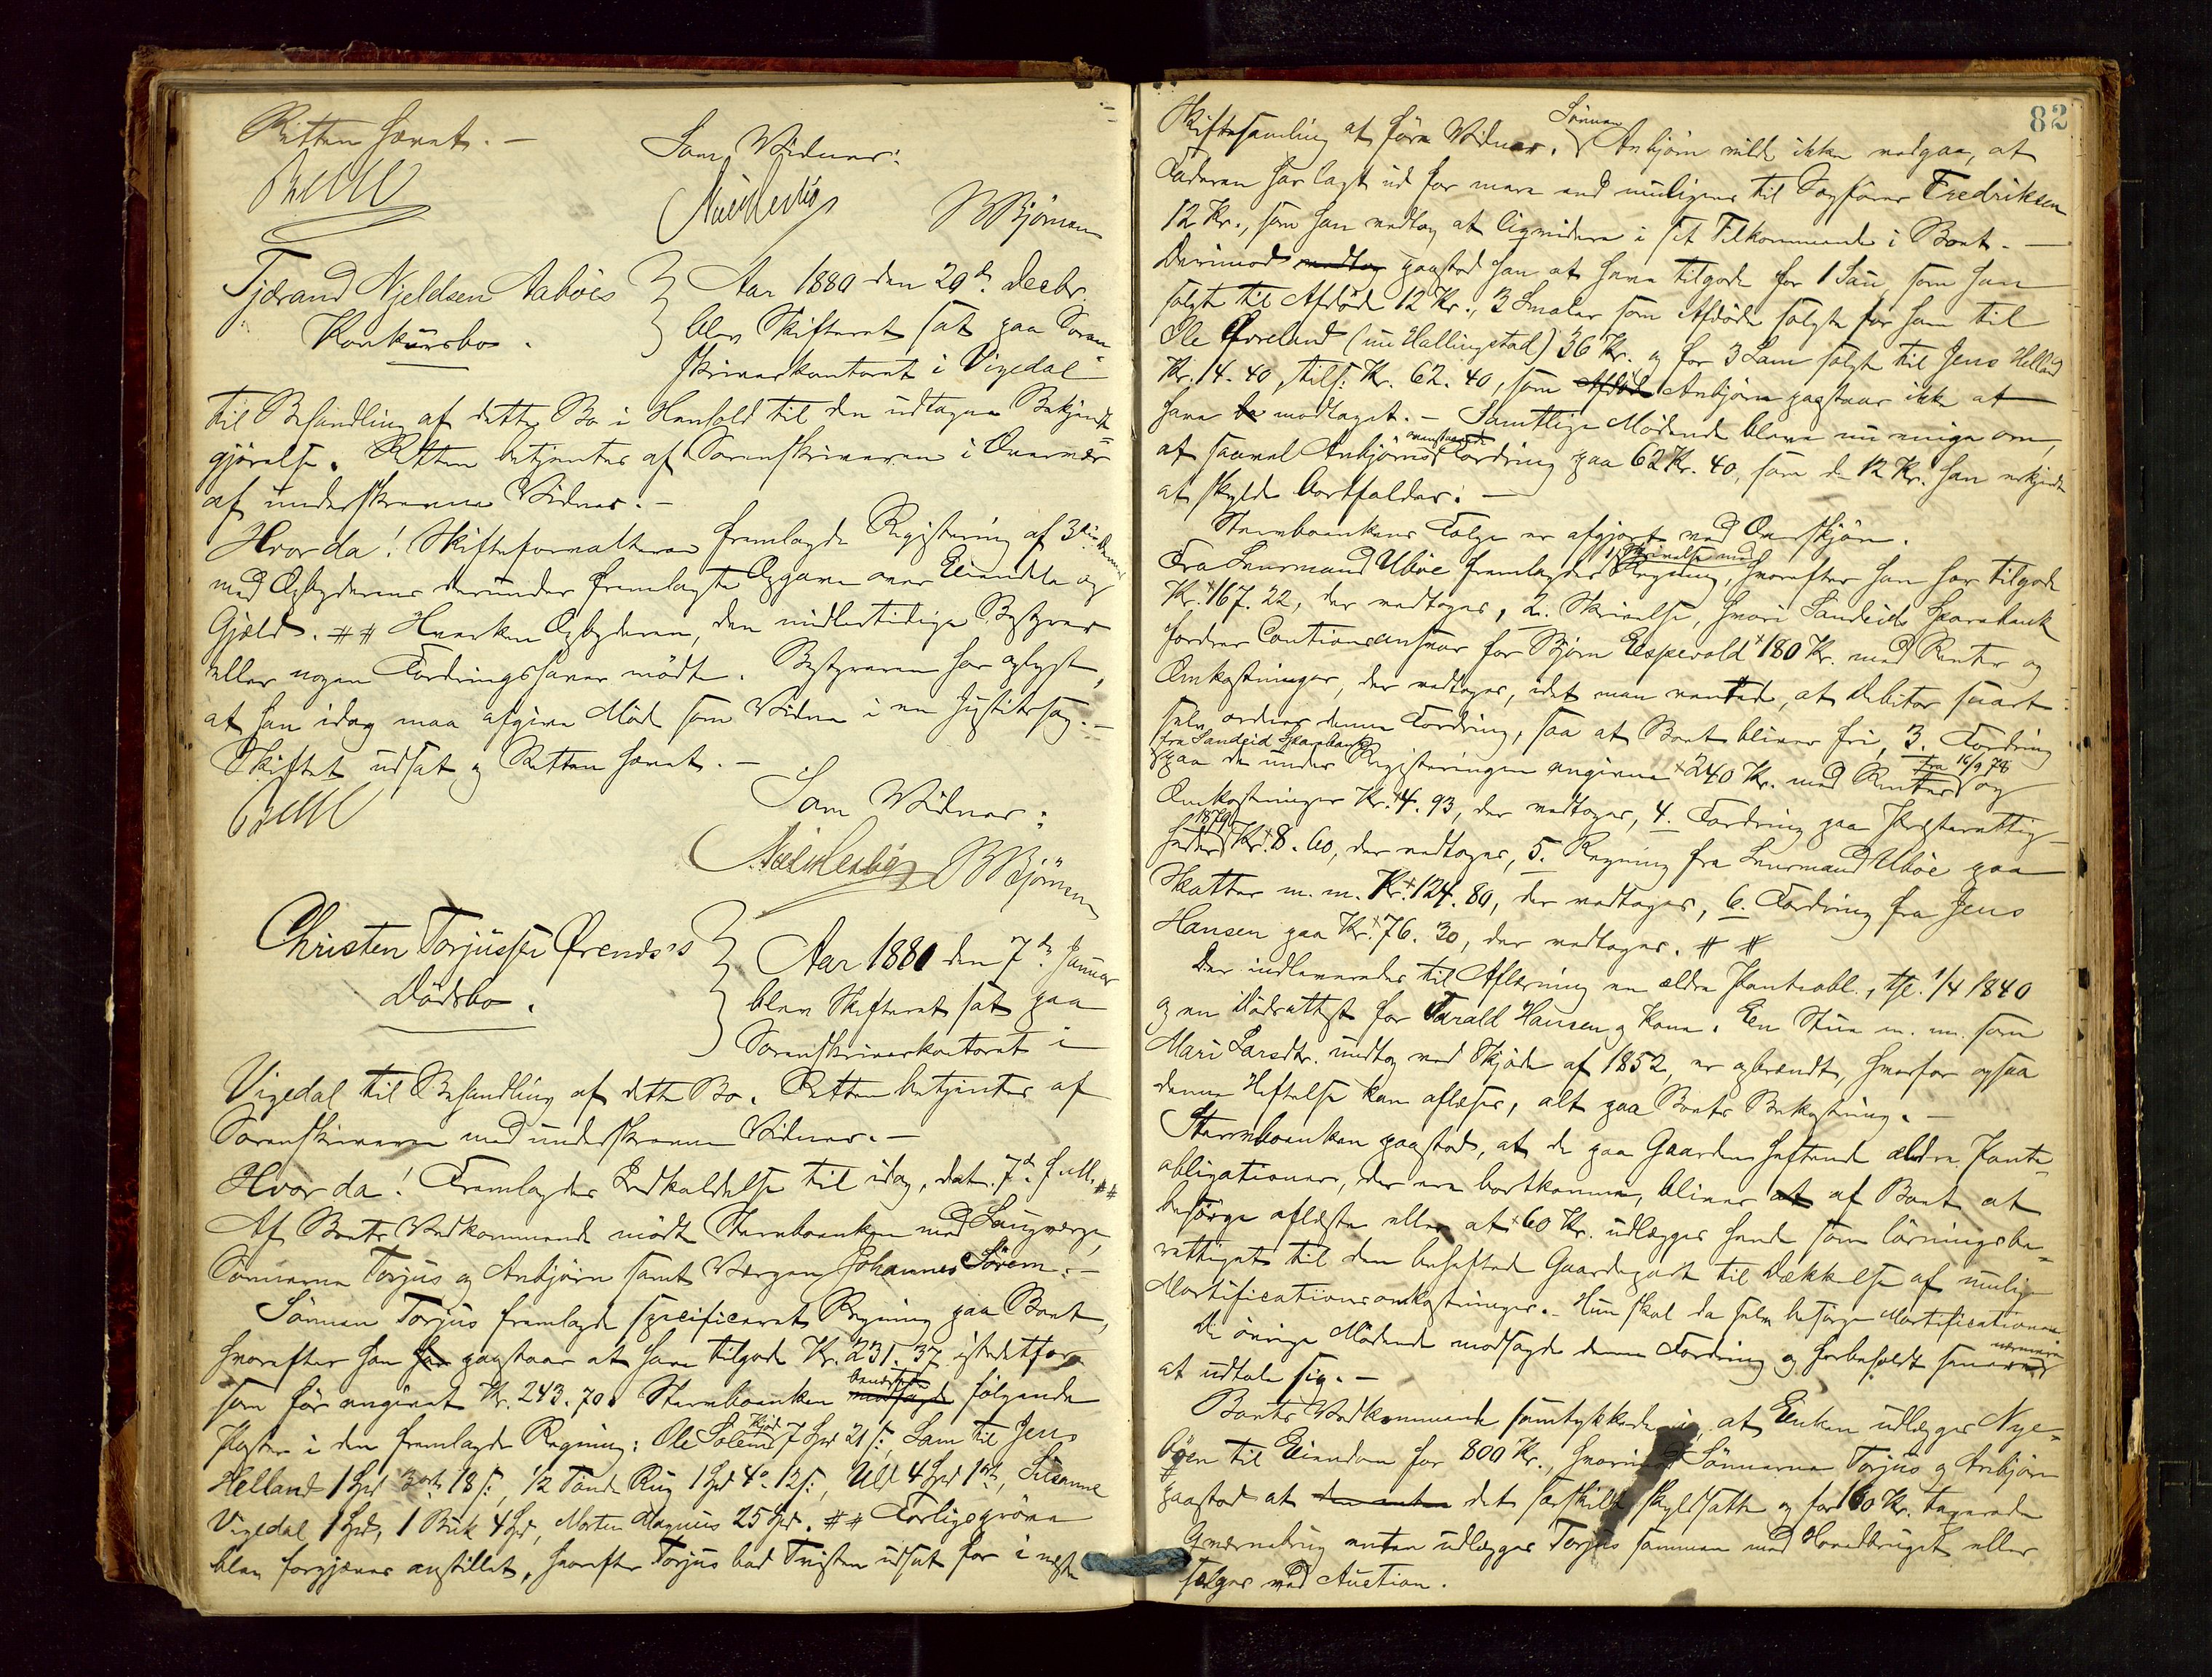 Retten hævet. –
Som Vidner:
BBjörnsen
Tjærand Njeldsen Aabøes
Konkursbo.
Aar 1880 den 29de Decbr.
blev Skifteret sat paa Soren-
skriverkontoret i Vigedal
til Behandling af dette Bo i Henhold til den udtagne Bekjendt-
gjørelse. Retten betjentes af Sorenskriveren i Overvær
af underskrevne Vidner. –
Hvor da! Skifteforvalteren fremlagde Registrering af 3die dennes
med Opbyderens derunder fremlagte Opgave over Eiendele og
Gjæld. ## Hverken Opbyderen, den midlertidige Bestyrer
eller nogen Fordringshaver mødte. Bestyreren har oplyst,
at han idag maa afgive Møde som Vidne i en Justitssag. –
Skiftet udsat og Retten hævet. –
Som Vidner:
BBjörnsen
Christen Torjussen Ørends's
Dødsbo.
Aar 1880 den 7de Januar
blev Skifteret sat paa
Sorenskriverkontoret i
Vigedal til Behandling af dette Bo. Retten betjentes af
Sorenskriveren med underskrevne Vidner. –
Hvor da! Fremlagdes Indkaldelse til idag, dat. 7de f. M. ##
Af Boets Vedkommende mødte Stervboenken med Laugværge,
Sønnerne Torjus og Anbjørn samt Værgen Johannes Sørem. –
Sønnen Torjus fremlagde specificeret Regning paa Boet,
hvorefter han paastaar at have tilgode Kr. 231.37 istedetfor
som før angivet Kr. 243.70. Stervboenken benægtede følgende
Poster i den fremlagde Regning: Ole Solem Kjød 7 Spd 21 s:, Lam til Jens
Helland 1 Spd 3 ort 18 s:, 1/2 Tønde Rug 1 Spd 4o 12 s:, Uld 4 Spd 1 ort, Susanne
Vigedal 1 Spd, 1 Buk 4 Spd, Morten Magnus 25 Spd. ## Forligsprøve
blev forgjæves anstillet, hvorefter Torjus bad Tvisten udsat for i næste
82
Skiftesamling at føre Vidner. Sønnen Anbjørn vilde ikke vedgaa, at
Faderen har lagt ud for mere end muligens til Sagfører Fredriksen
12 Kr., som han vedtog at liqvidere i sit Tilkommende i Boet. –
Derimod vedtog paastod han at have tilgode for 1 Sau, som han
solgte til Afdøde 12 Kr., 3 Smaler som Afdøde solgte for ham til
Ole Øvreland (nu Hallingstad) 36 Kr. og for 3 Lam solgt til Jens Helland
Kr. 14.40, tils: Kr. 62.40, som Afdøde Anbjørn paastaar ikke at
have modtaget. – Samtlige Mødende bleve nu enige om,
at saavel Anbjørns ovenstaaende Fordring paa 62 Kr. 40, som de 12 Kr. han erkjendte
at skylde bortfalder. –
Stervboenkens Følge er afgjort ved Overskjøn.
Fra Lensmand Ubøe fremlagdes 1, Skrivelse med Regning, hvorefter han har tilgode
Kr. 167.22, der vedtoges, 2. Skrivelse, hvori Sandeids Sparebank
fordrer Cautionsansvar for Bjørn Espevold 180 Kr. med Renter og
Omkostninger, der vedtoges, idet man ventede, at Debitor snart
selv ordner denne Fordring, saa at Boet bliver fri, 3. Fordring
fra Sandeid Sparebank
paa de under Registreringen angivne 240 Kr. med Renter fra 16/9 78 og
Omkostninger Kr. 4.93, der vedtoges, 4. Fordring paa Presterettig-
heder 1879 Kr. 8.60, der vedtoges, 5. Regning fra Lensmand Ubøe paa
Skatter m. m. Kr. 124.80, der vedtoges, 6. Fordring fra Jens
Hansen paa Kr. 76.30, der vedtoges. # #
Der indleveredes til Aflæsning en ældre Panteobl., tgl. 1/4 1840
og en Dødsattest for Tarald Hansen og Kone. En Stue m. m. som
Mari Larsdtr. undtog ved Skjøde af 1852, er opbrændt, hvorfor ogsaa
denne Heftelse kan aflæses, alt paa Boets Bekostning. –
Stervboenken paastod, at de paa Gaarden heftende ældre Pante-
obligationer, der ere bortkomne, bliver af Boet at
besørge aflæste eller at 60 Kr. udlægges hende som løsningsbe-
rettiget til den beheftede Gaardepart til Dækkelse af mulige
Mortificationsomkostninger. – Hun skal da selv besørge Mortificationen.
De øvrige Mødende modsagde denne Fordring og forbeholdt senere nærmere
at udtale sig. –
Boets Vedkommende samtykkede i, at Enken udlægges Nye-
bøen til Eiendom for 800 Kr., hvorimod Sønnerne Torjus og Anbjørn
paastod at det særskilt skyldsatte og for 160 Kr. taxerede
Qværnebrug enten udlægges Torjus sammen med Hovedbruget eller
sælges ved Auction.